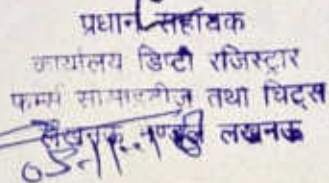 प्रधान सहायक
कार्यालय डिप्टी रजिस्ट्रार
फर्म्स सोसाइटीज़ तथा चिट्स
लखनऊ मण्डल लखनऊ